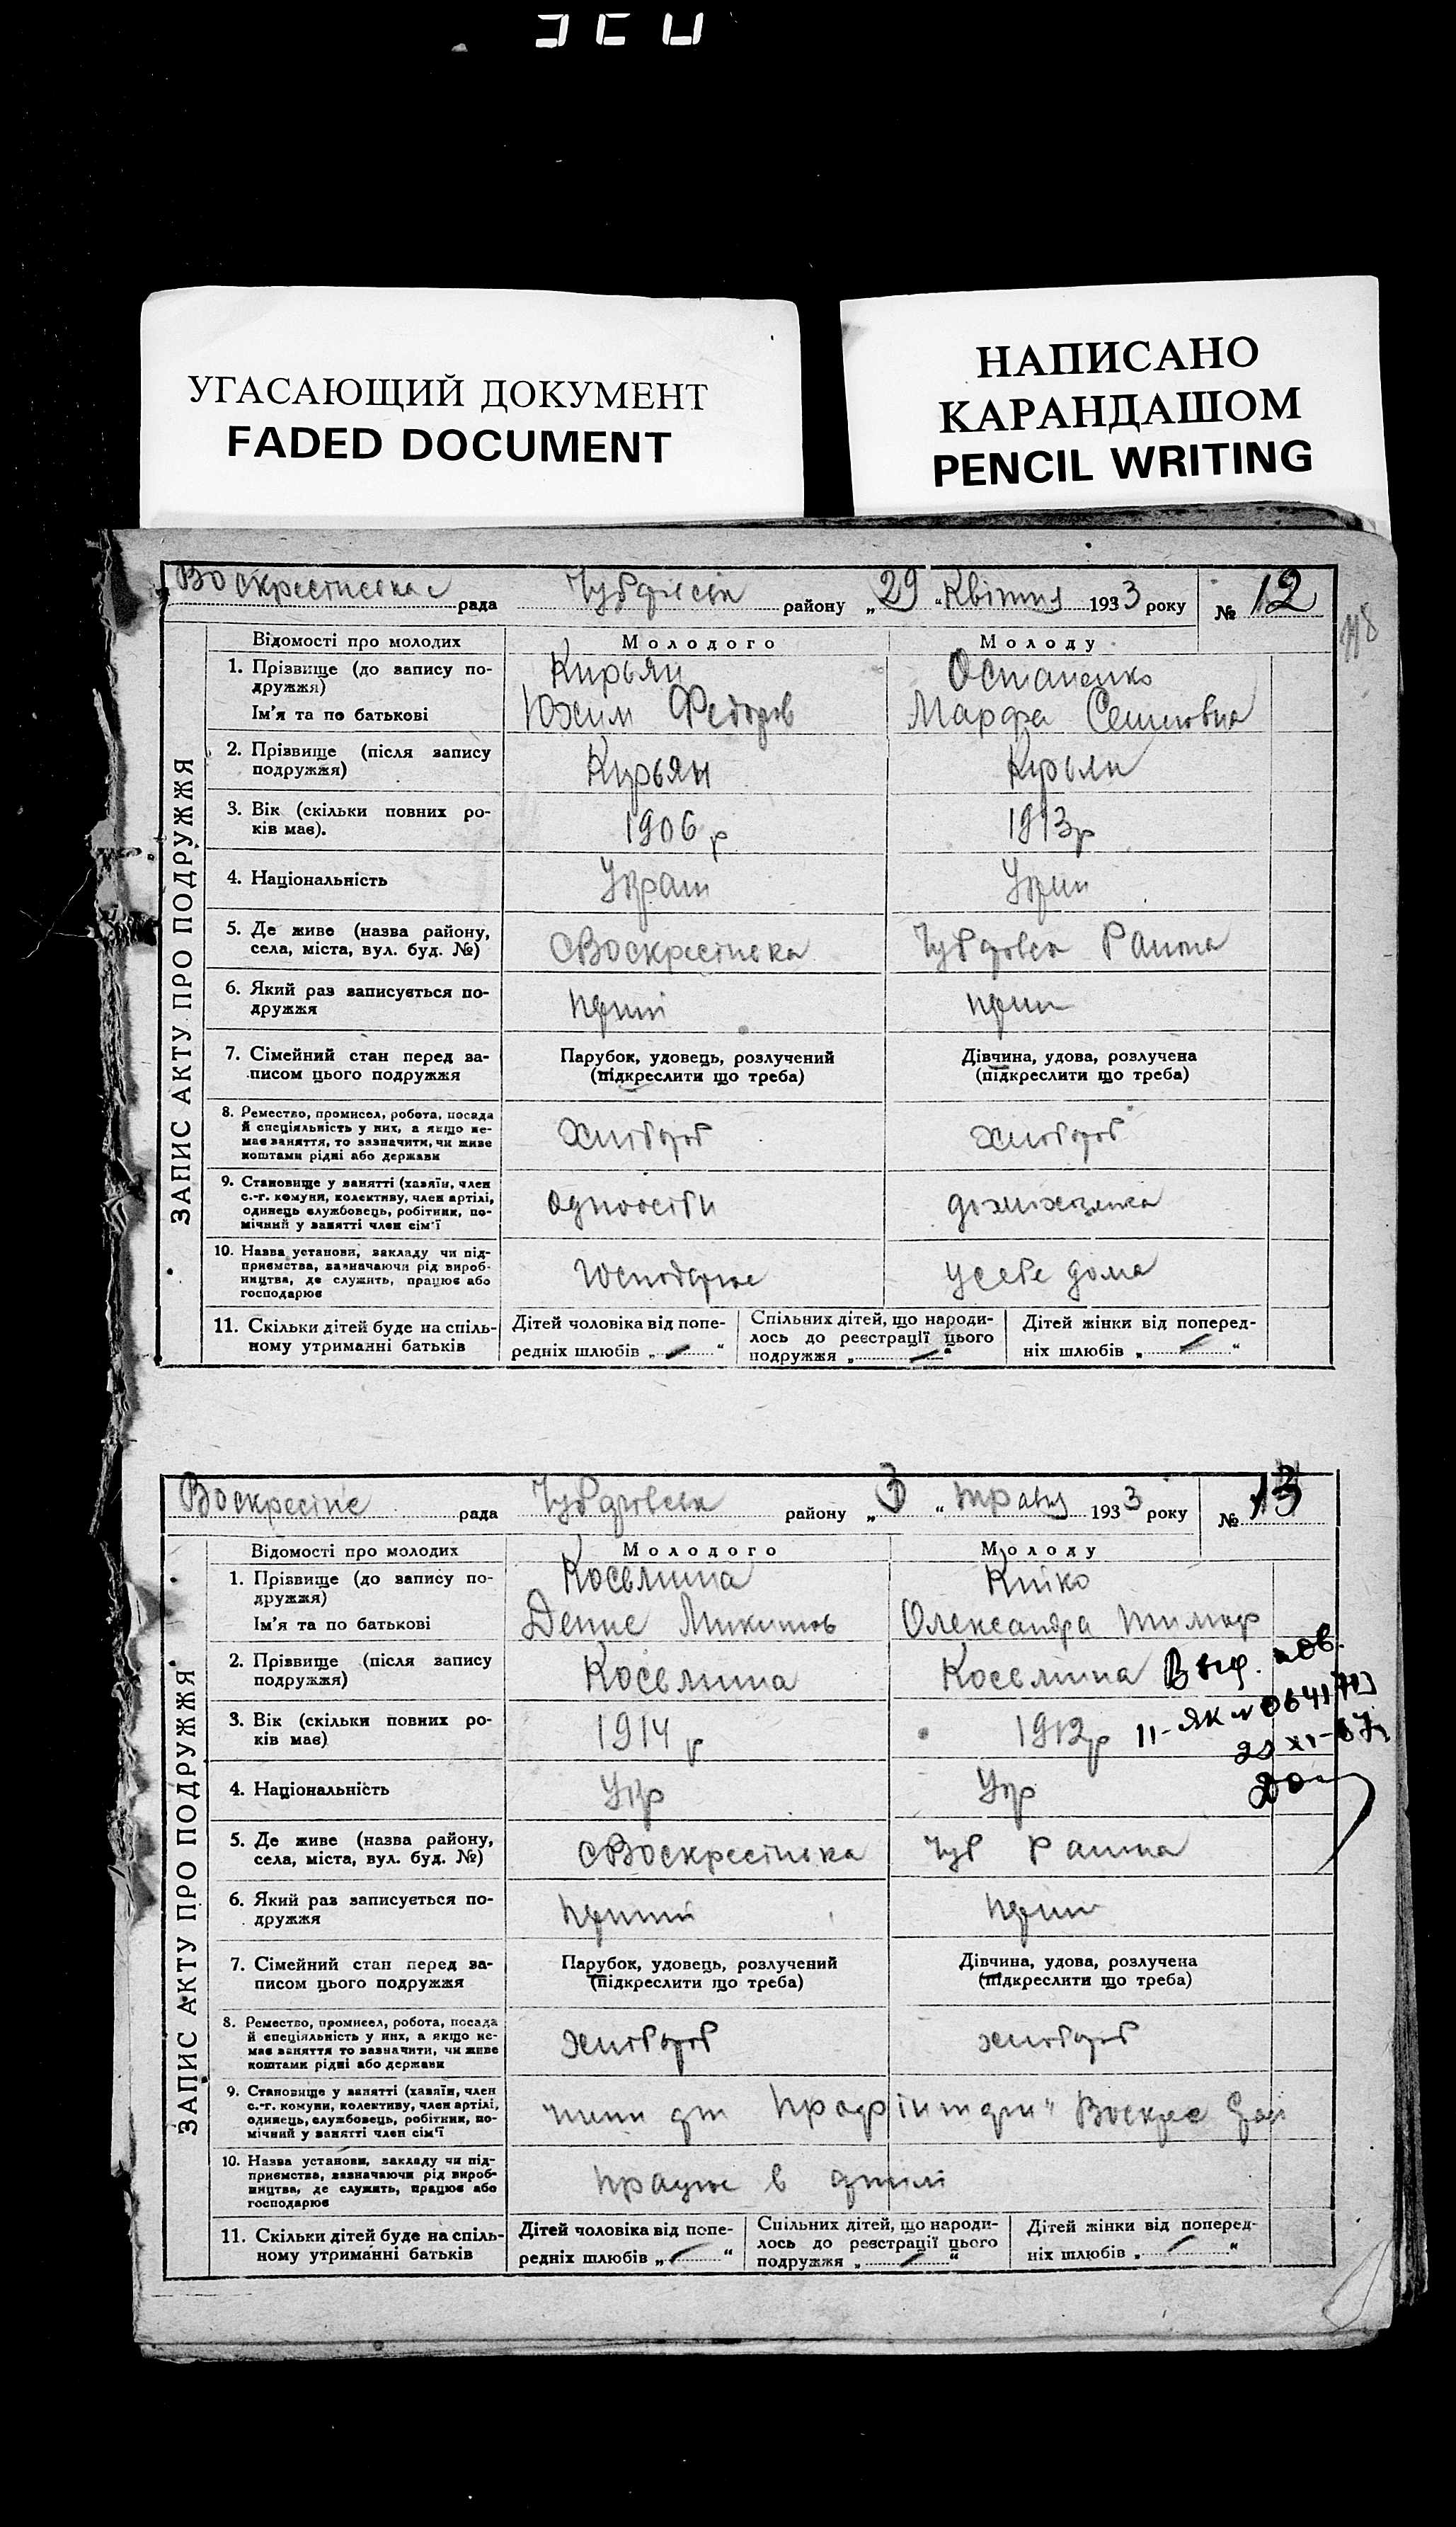 УГАСАЮЩИЙ ДОКУМЕНТ
FADED DOCUMENT
НАПИСАНО
КАРАНДАШОМ
PENCIL WRITING
рада району „29 “ Квітня 1933 року № 12
ЗАПИС АКТУ ПРО ПОДРУЖЖЯ
Відомості про молодих Молодого Молоду
1. Прізвище (до запису по-
дружжя) Кирьян Остапенко
Ім'я та по батькові Юхим Федоров Марфа Семеновна
2. Прізвище (після запису
подружжя) Кирьян Кирьян
3. Вік (скільки повних ро-
ків має). 1906 р 1913р
4. Національність Украін Украін
5. Де живе (назва району,
села, міста, вул. буд. №) Раина
6. Який раз записується по-
дружжя
7. Сімейний стан перед за-
писом цього подружжя
Парубок, удовець, розлучений
(підкреслити що треба)
Дівчина, удова, розлучена
(підкреслити що треба)
8. Ремество, промисел, робота, посада
й спеціяльність у них, а якщо не-
має заняття, то зазначити, чи живе
коштами рідні або держави
Хлібороб хлібороб
9. Становище у занятті (хазяїн, член
с.-г. комуни, колективу, член артілі,
одинець службовець, робітник, по-
мічний у занятті член сім'ї
домохозяйка
10. Назва установи, закладу чи під-
приємства, зазначаючи рід вироб-
ництва, де служить, працює або
господарює
у себе дома
11. Скільки дітей буде на спіль-
ному утриманні батьків
Дітей чоловіка від попе-
редніх шлюбів „ “
Спільних дітей, що народи-
лось до реєстрації цього
подружжя „ “
Дітей жінки від поперед-
ніх шлюбів „ “
рада району „3 “ травня 1933 року № 13
ЗАПИС АКТУ ПРО ПОДРУЖЖЯ
Відомості про молодих Молодого Молоду
1. Прізвище (до запису по-
дружжя)
Ім'я та по батькові Денис Микитов Олександра Тимоф
2. Прізвище (після запису
подружжя)
3. Вік (скільки повних ро-
ків має) 1914 р 1912р
4. Національність Укр Укр
5. Де живе (назва району,
села, міста, вул. буд. №) Чуб Раина
6. Який раз записується по-
дружжя
7. Сімейний стан перед за-
писом цього подружжя
Парубок, удовець, розлучений
(підкреслити що треба)
Дівчина, удова, розлучена
(підкреслити що треба)
8. Ремество, промисел, робота, посада
й спеціяльність у них, а якщо не-
має заняття то зазначити, чи живе
коштами рідні або держави
хлібороб хлібороб
9. Становище у занятті (хазяїн, член
с.-г. комуни, колективу, член артілі,
одинець, службовець, робітник, по-
мічний у занятті член сім'ї
10. Назва установи, закладу чи під-
приємства, зазначаючи рід вироб-
ництва, де служить, працює або
господарює
працює в артілі
11. Скільки дітей буде на спіль-
ному утриманні батьків
Дітей чоловіка від попе-
редніх шлюбів „ “
Спільних дітей, що народи-
лось до реєстрації цього
подружжя „ “
Дітей жінки від поперед-
ніх шлюбів „ “